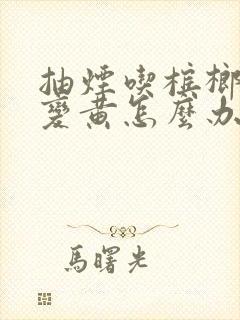 抽煙喫檳榔
變黃怎麼办
馬曙光